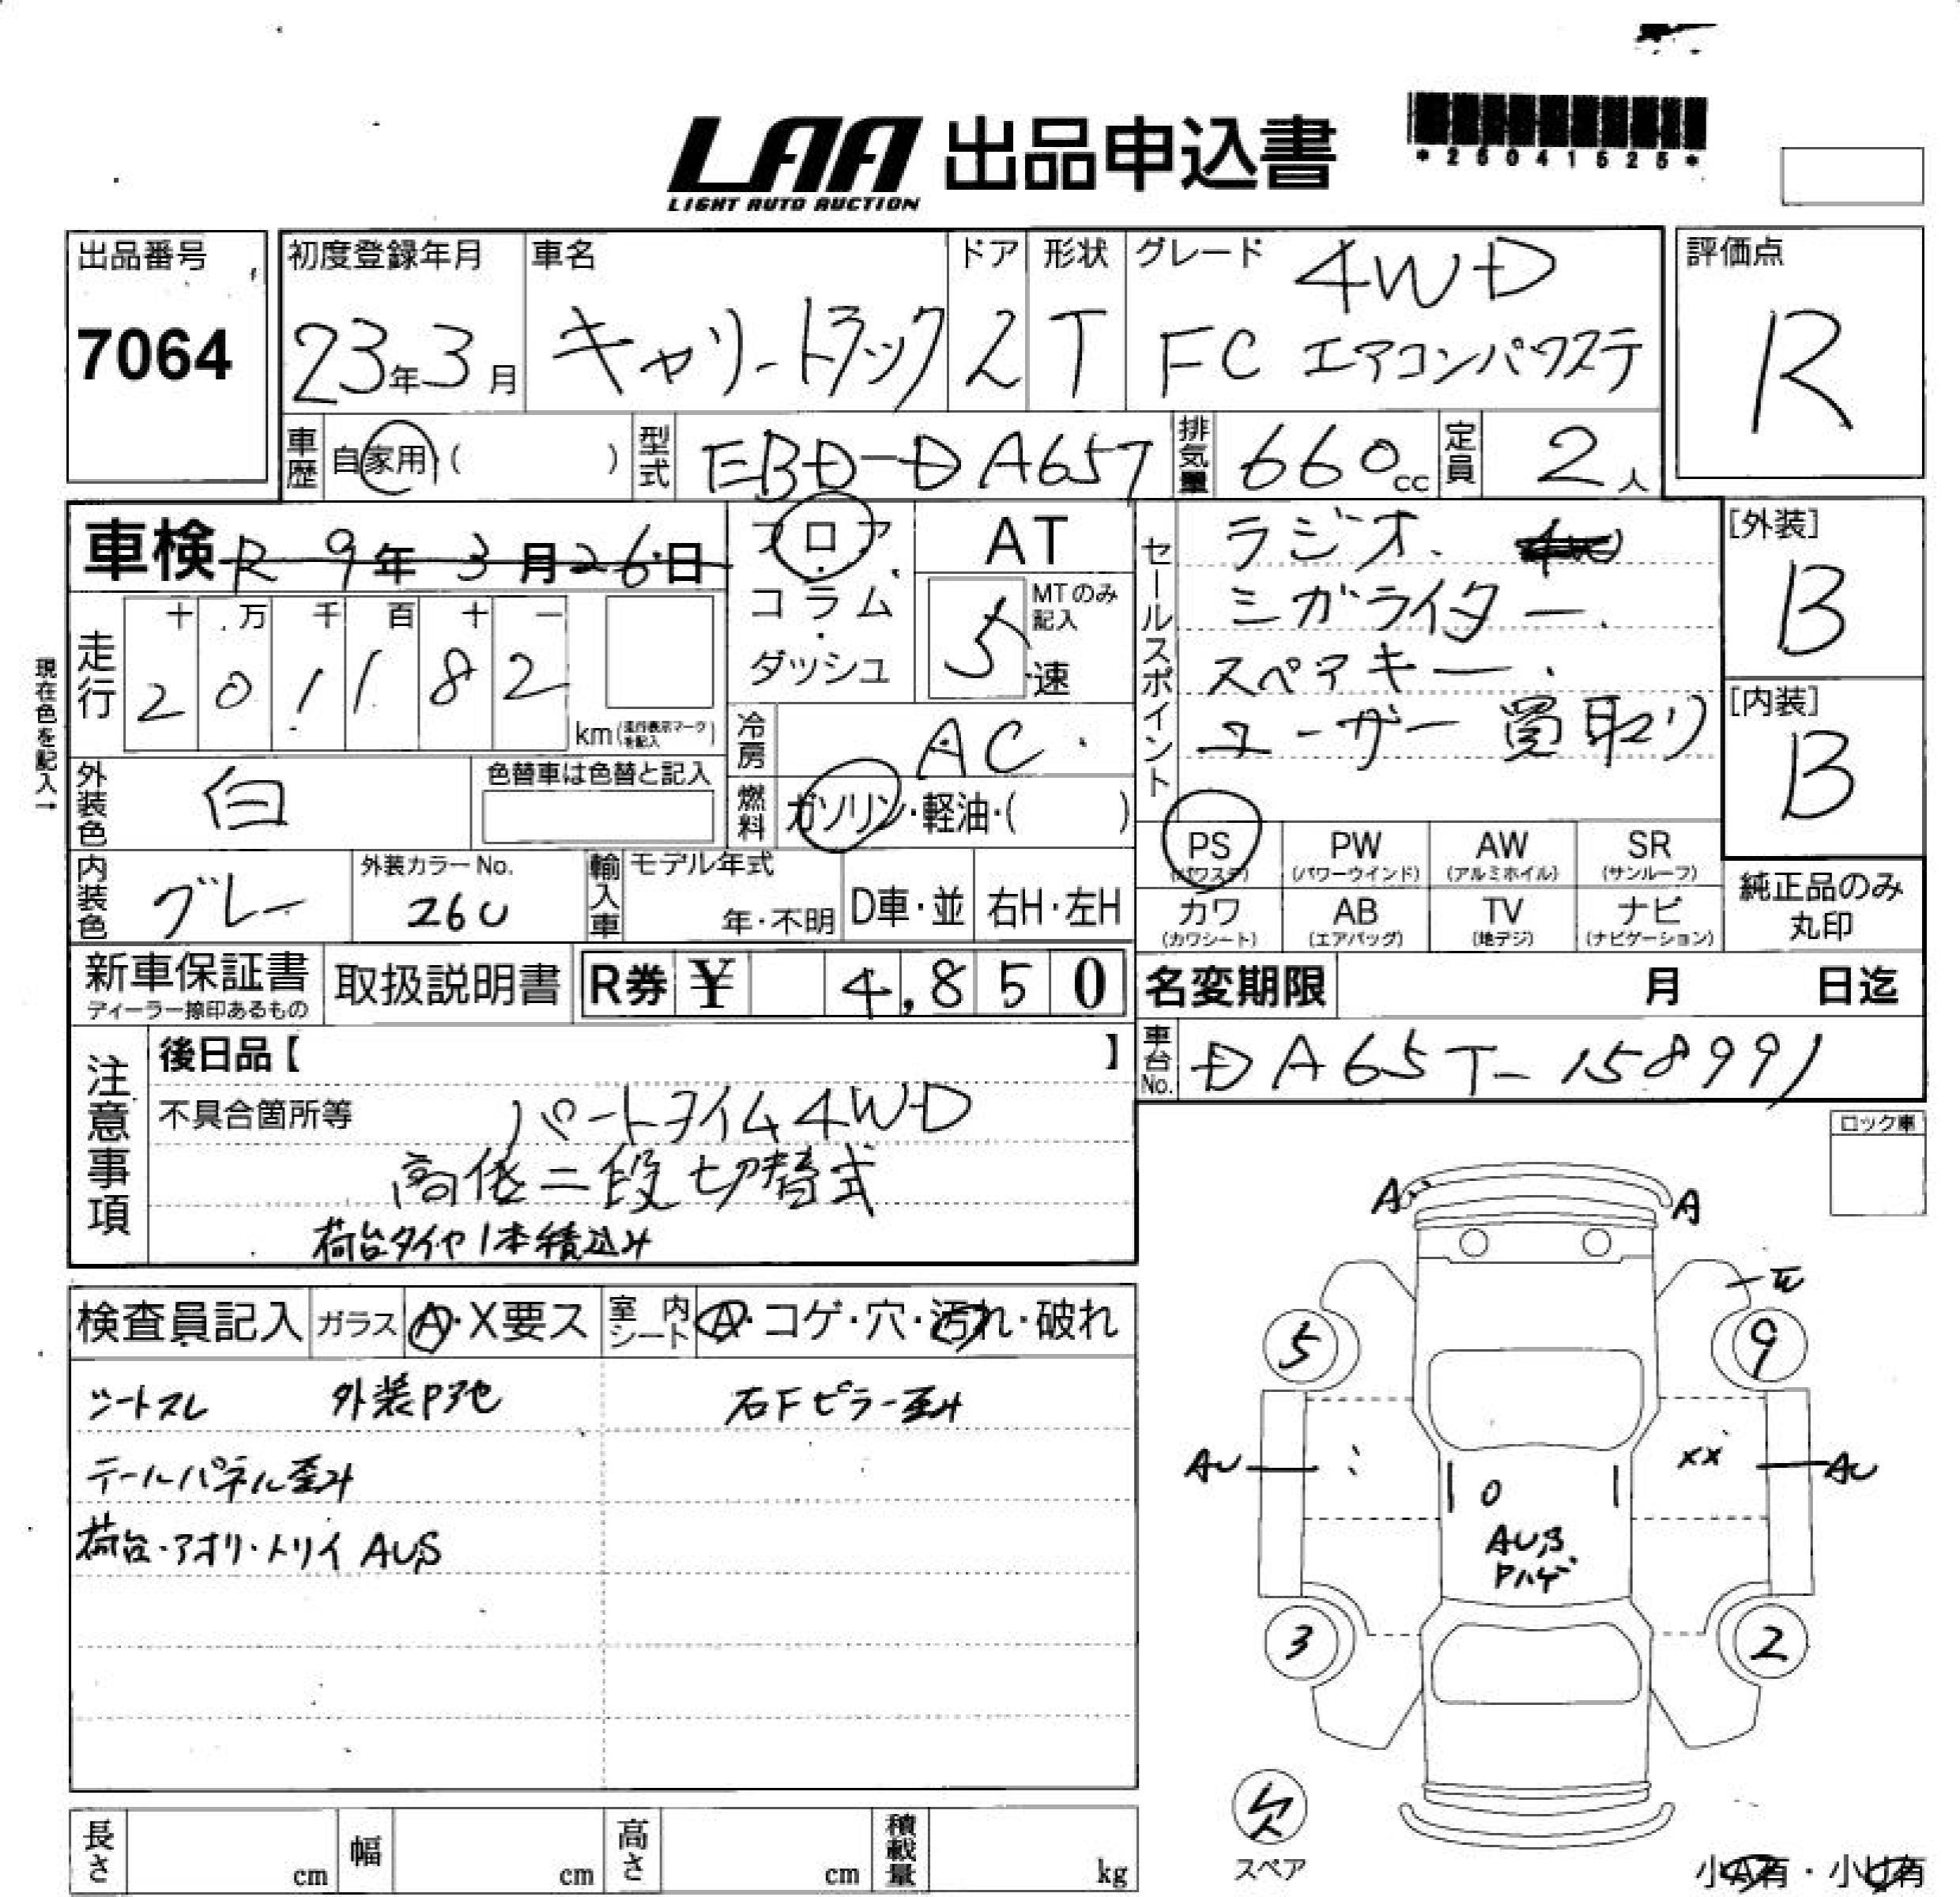 LAA 出品申込書
LIGHT AUTO AUCTION
*26041525*
出品番号
7064
初度登録年月
23年3月
車名
キャリートラック
ドア
2
形状
T
グレード
4WD
FC エアコンパワステ
評価点
R
車歴
自家用 ( )
型式
EBD-DA65T
排気量
660cc
定員
2人
車検 R 9年 3月26日
フロア
・
コラム
・
ダッシュ
AT
MTのみ
記入
5速
セールスポイント
ラジオ.
シガライター.
スペアキー.
ユーザー買取り
[外装]
B
[内装]
B
現在色を記入→
走行
十 万 千 百 十 一
2 0 1 1 8 2
km(走行表示マークを記入)
冷房
AC.
燃料
ガソリン・軽油・( )
外装色
白
色替車は色替と記入
PS
(パワステ)
PW
(パワーウインド)
AW
(アルミホイル)
SR
(サンルーフ)
カワ
(カワシート)
AB
(エアバッグ)
TV
(地デジ)
ナビ
(ナビゲーション)
純正品のみ
丸印
内装色
グレー
外装カラーNo.
26U
輸入車
モデル年式
年・不明
D車・並
右H・左H
新車保証書
ディーラー捺印あるもの
取扱説明書
R券 ¥ 4,850
名変期限 月 日迄
車台No.
DA65T-158991
注意事項
後日品【 】
不具合箇所等 パートタイム4WD
高低二段切替式
荷台タイヤ1本積込み
ロック車
検査員記入
ガラス
A・X要ス
室内シート
A・コゲ・穴・汚れ・破れ
シートスレ
右Fピラー歪み
テールパネル歪み
荷台・アオリ・トリイ AUS
A
A
5
9
AU
AU
XX
O
AUS
Pハゲ
3
2
欠
スペア
小A有・小U有
長さ cm
幅 cm
高さ cm
積載量 kg